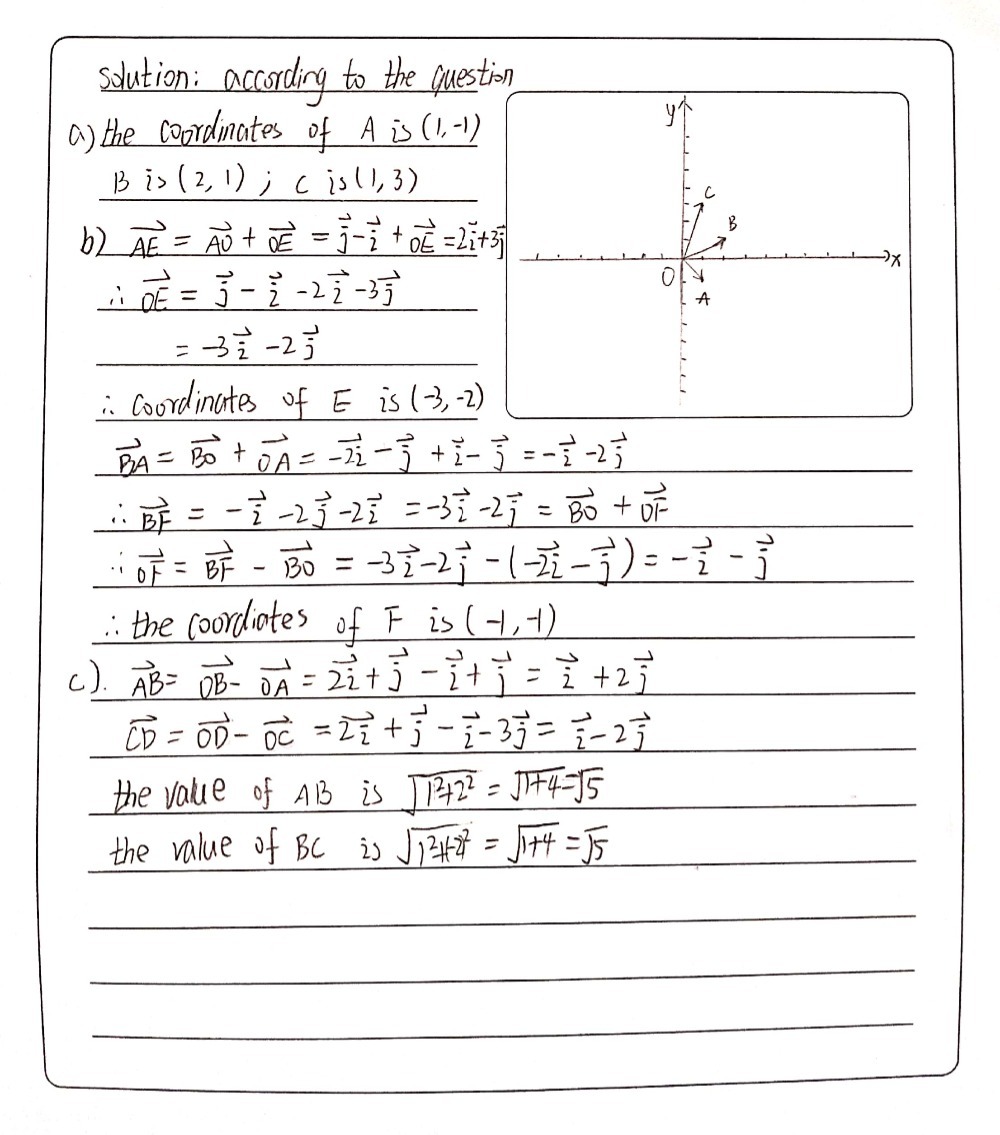 solution: according to the question
a) the coordinates of A is (1,-1)
B is (2, 1) ; C is (1, 3)
b) \overrightarrow{AE} = \overrightarrow{AO} + \overrightarrow{OE} = \vec{j} - \vec{i} + \overrightarrow{OE} = 2\vec{i} + 3\vec{j}
∴ \overrightarrow{OE} = \vec{j} - \vec{i} - 2\vec{i} - 3\vec{j}
= -3\vec{i} - 2\vec{j}
∴ coordinates of E is (-3, -2)
y
C
B
x
O
A
\overrightarrow{BA} = \overrightarrow{BO} + \overrightarrow{OA} = -2\vec{i} - \vec{j} + \vec{i} - \vec{j} = -\vec{i} - 2\vec{j}
∴ \overrightarrow{BF} = -\vec{i} - 2\vec{j} - 2\vec{i} = -3\vec{i} - 2\vec{j} = \overrightarrow{BO} + \overrightarrow{OF}
∴ \overrightarrow{OF} = \overrightarrow{BF} - \overrightarrow{BO} = -3\vec{i} - 2\vec{j} - (-2\vec{i} - \vec{j}) = -\vec{i} - \vec{j}
∴ the coordiates of F is (-1, -1)
c). \overrightarrow{AB} = \overrightarrow{OB} - \overrightarrow{OA} = 2\vec{i} + \vec{j} - \vec{i} + \vec{j} = \vec{i} + 2\vec{j}
\overrightarrow{CD} = \overrightarrow{OD} - \overrightarrow{OC} = 2\vec{i} + \vec{j} - \vec{i} - 3\vec{j} = \vec{i} - 2\vec{j}
the value of AB is \sqrt{1^2+2^2} = \sqrt{1+4} = \sqrt{5}
the value of BC is = \sqrt{1+4} = \sqrt{5}